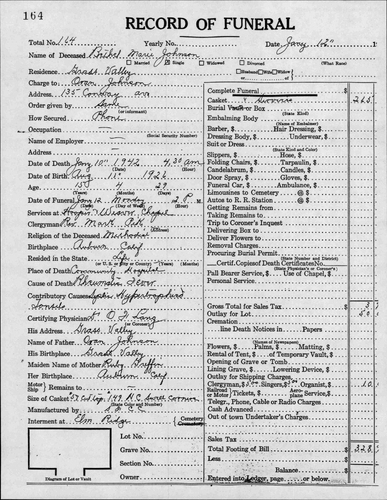 164
RECORD OF FUNERAL
Total No. 164 Yearly No. Date Jany 12"
Name of Deceased Marie Johnson
Married Single Widowed Divorced (What Race)
Residence Grass Valley
Charge to Oran Johnson
Address 135 Conway ave
Order given by
(or informant)
How Secured Phone
Occupation
(Social Security Number)
Name of Employer
Address
Date of Death Jany 10" 1942 4.30 am
Date of Birth Aug 11" 1926
Age 15 4 29
(Years) (Months) (Days)
Date of Funeral Jany 12 Monday 2 P M
Services at Hooper & Weaver Chapel
Clergyman Rev. Mark
Religion of the Deceased Methodist
Birthplace Auburn Calif
Resided in the State Life
Place of Death Community Hospital
Cause of Death Rheumatic Fever
Contributory Causes Septic Hypertrophied
Tonsils
Certifying Physician
His Address Grass Valley
Name of Father Oran Johnson
His Birthplace Grass Valley
Maiden Name of Mother Ruby Griffin
Her Birthplace Auburn Calif
Motor Ship Remains to
Size of Casket
Manufactured by
Interment at Elm Ridge Cemetery Crematory
Lot No.
Grave No.
Section No.
Block No.
Diagram of Lot or Vault
Complete Funeral
Casket & Service 265
Burial Vault or Box
(State Kind)
Embalming Body
(Name of Embalmer)
Barber, $ Hair Dressing, $
Dressing Body, $ Underwear, $
Suit or Dress
(State Kind and Color)
Slippers, $ Hose, $
Folding Chairs, $ Tarpaulin, $
Candelabrum, $ Candles, $
Door Spray, $ Gloves, $
Funeral Car, $ Ambulance, $
Limousines to Cemetery @
Autos to R. R. Station @
Getting Remains from
Taking Remains to
Trip to Coroner's Inquest
Delivering Box to
Deliver Flowers to
Removal Charges
Procuring Burial Permit
(State Number and District)
Certif. Copies of Death Certificates No.
(State Physician's or Coroner's)
Pall Bearer Service, $ Use of Chapel, $
Personal Service
Gross Total for Sales Tax
Outlay for Lot 50
line Death Notices in Papers
Flowers, $ Palms, $ Matting, $
Rental of Tent, $ of Temporary Vault, $
Opening of Grave or Tomb
Lining Grave, $ Lowering Device, $
Outlay for Shipping Charges
Clergyman, $ Singers, $ Organist, $ 10
Railroad Motor Tickets, $ Aeroplane Service, $
Telegr., Phone, Cable or Radio Charges
Cash Advanced
Out of town Undertaker's Charges
Sales Tax
Total Footing of Bill 328
Less
Balance
Entered into Ledger, page or below.